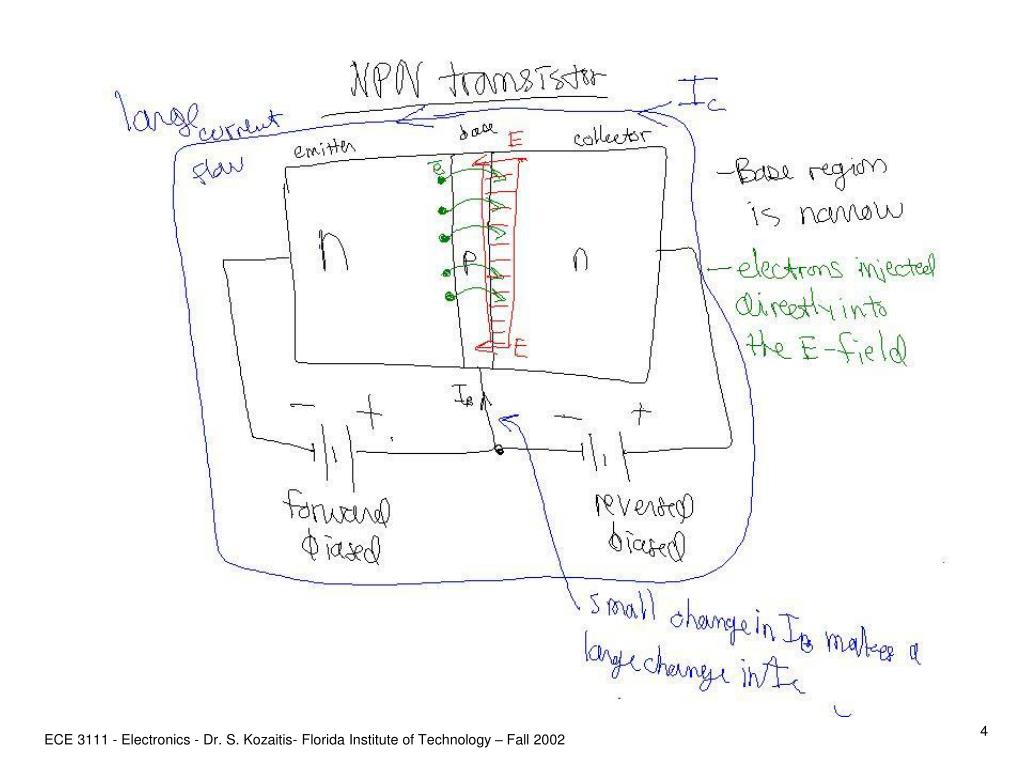 NPN transistor
large current
flow
Ic
emitter
base
E
collector
e
n
p
n
E
- Base region
is narrow
- electrons injected
directly into
the E-field
IB
- +
- +
forward
biased
reversed
biased
small change in IB makes a
large change in Ic
ECE 3111 - Electronics - Dr. S. Kozaitis- Florida Institute of Technology – Fall 2002
4